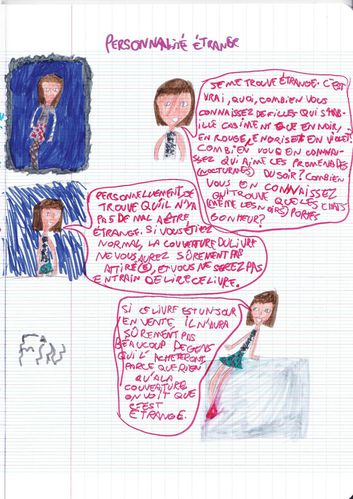 PERSONNALITÉ ÉTRANGE
JE ME TROUVE ÉTRANGE. C'EST
VRAI, QUOI, COMBIEN VOUS
CONNAISSEZ DE FILLES QUI S'HAB-
ILLE CASIMENT QUE EN NOIR,
EN ROUGE, EN GRIS ET EN VIOLET.
COMBIEN VOUS EN CONNAI-
SSEZ QUI AIME LES PROMENADES
(NOCTURNES) DU SOIR? COMBIEN
VOUS EN CONNAISSEZ
QUI TROUVE QUE LES CHATS
(MÊME LES NOIRS) PORTES
BONHEUR?
PERSONNELLEMENT JE
TROUVE QU'IL N'Y A
PAS DE MAL A ÊTRE
ÉTRANGE. SI VOUS ÉTIEZ
NORMAL, LA COUVERTURE DU LIVRE
NE VOUS AUREZ SÛREMENT PAS
ATTIRÉ(E), ET VOUS NE SEREZ PAS
ENTRAIN DE LIRE CE LIVRE.
SI CE LIVRE EST UN JOUR
EN VENTE, IL N'AURA
SÛREMENT PAS
BEAUCOUP DE GENS
QUI L'ACHETERONS
PARCE QUE RIEN
QU'A LA
COUVERTURE
ON VOIT QUE
C'EST
ÉTRANGE.
FIN